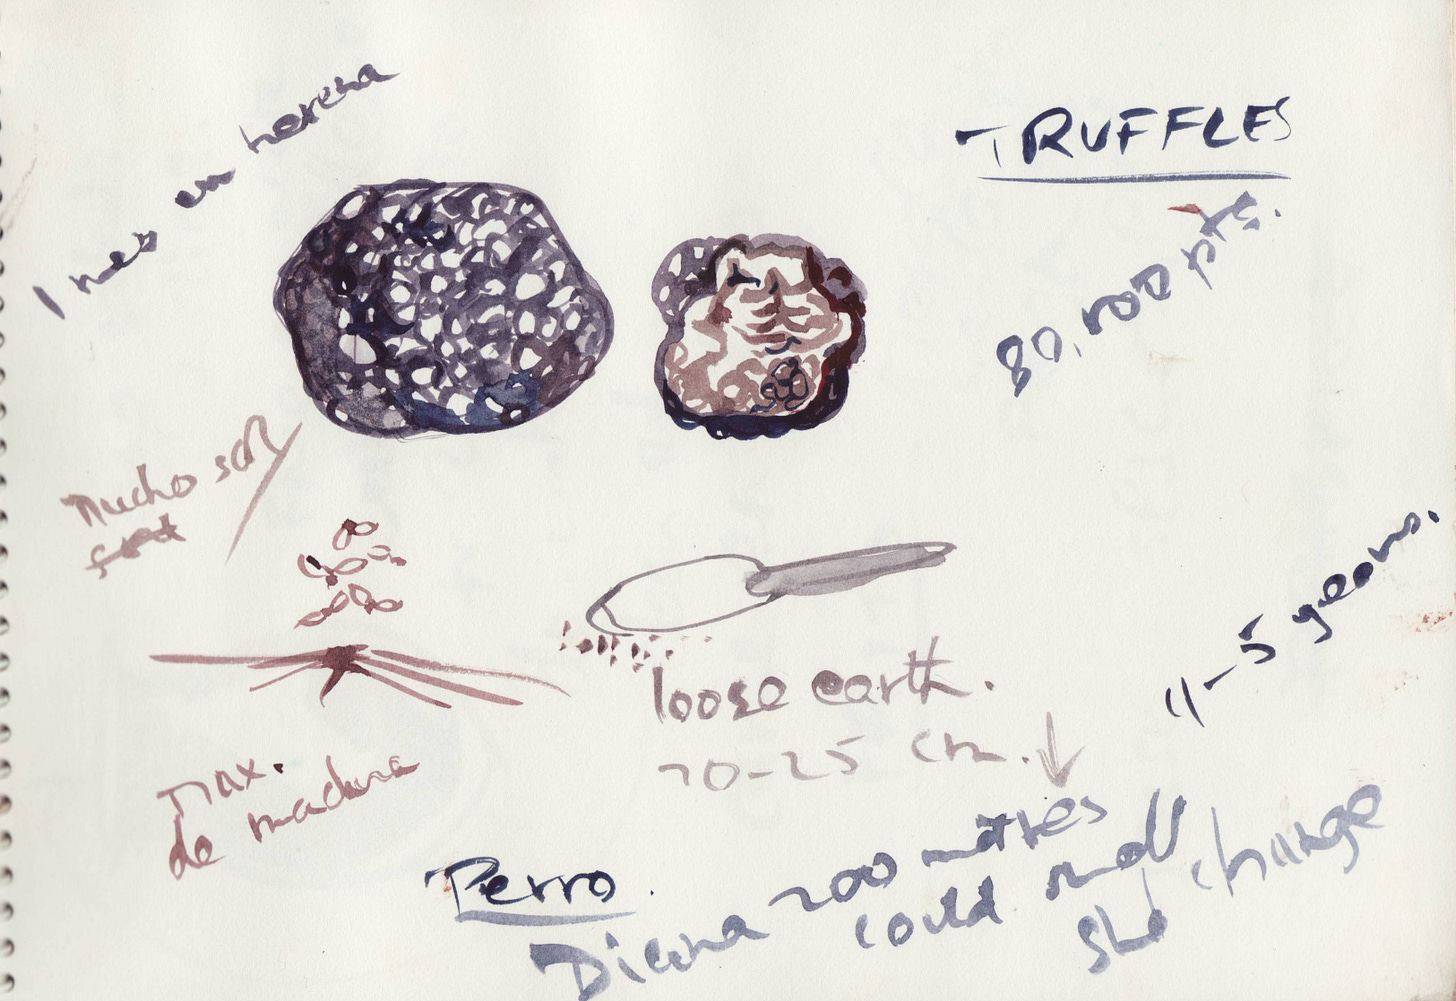 TRUFFLES
1 mes en
80,000 pts.
Mucho sol
4-5 years.
loose earth.
20-25 cm.
max.
de madura
Perro.
Diana 200 metres
could smell
she change